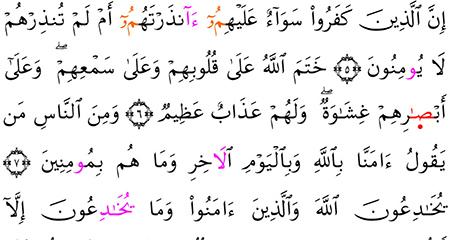 إِنَّ ٱلَّذِينَ كَفَرُوا۟ سَوَآءٌ عَلَيْهِمُۥٓ ءَآنذَرْتَهُمُۥٓ أَمْ لَمْ تُنذِرْهُمْ
لَا يُومِنُونَ ۝٥ خَتَمَ ٱللَّهُ عَلَىٰ قُلُوبِهِمْ وَعَلَىٰ سَمْعِهِمْۖ وَعَلَىٰٓ
أَبْصَٰرِهِمْ غِشَٰوَةٌۖ وَلَهُمْ عَذَابٌ عَظِيمٌ ۝٦ وَمِنَ ٱلنَّاسِ مَن
يَقُولُ ءَامَنَّا بِٱللَّهِ وَبِٱلْيَوْمِ ٱلَاخِرِ وَمَا هُم بِمُومِنِينَ ۝٧
يُخَٰدِعُونَ ٱللَّهَ وَٱلَّذِينَ ءَامَنُوا۟ وَمَا يُخَٰدِعُونَ إِلَّآ